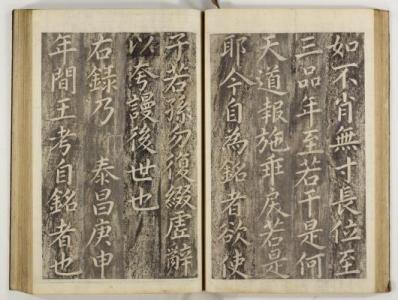 如不肖無寸長位至
三品年至若干是何
天道報施乖戾若是
耶今自為銘者欲使
子若孫勿復綴虛辭
以夸謾後世也
右錄乃 泰昌庚申
年間王考自銘者也